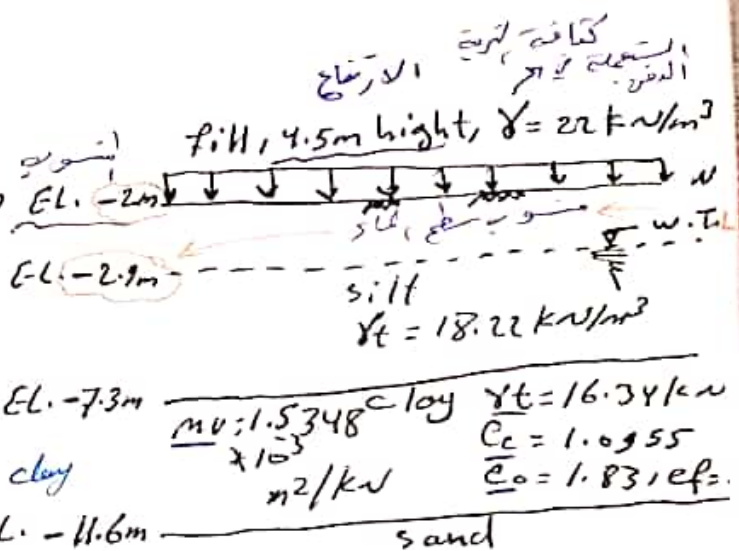 كثافة التربة
المستعملة في
الدفن
الارتفاع
fill, 4.5m hight, γ = 22 kN/m³
منسوب
EL. -2m
منسوب سطح الماء
W.T.
EL. -2.9m
silt
γt = 18.22 kN/m³
EL. -7.3m
clay γt = 16.34 kN
mv: 1.5348
*10⁻³
m²/kN
Cc = 1.0955
clay
e₀ = 1.83, ef=.
L. -11.6m
sand